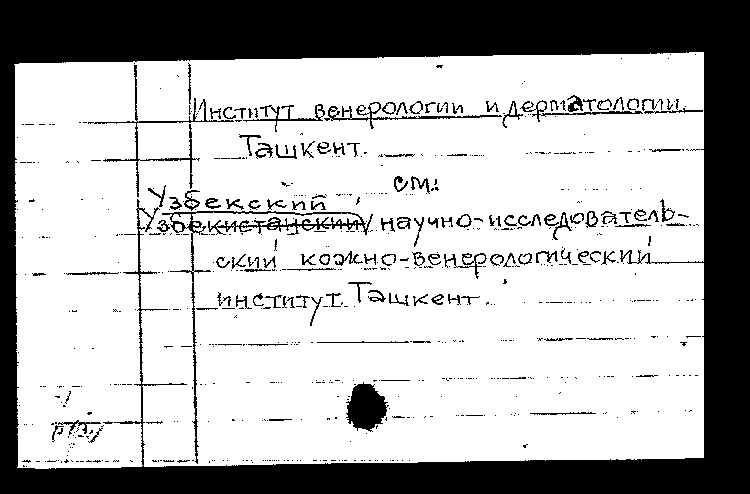 Институт венерологии и дерматологии.
Ташкент.
см:
Узбекский
Узбекистанский научно-исследователь-
ский кожно-венерологический
институт. Ташкент.